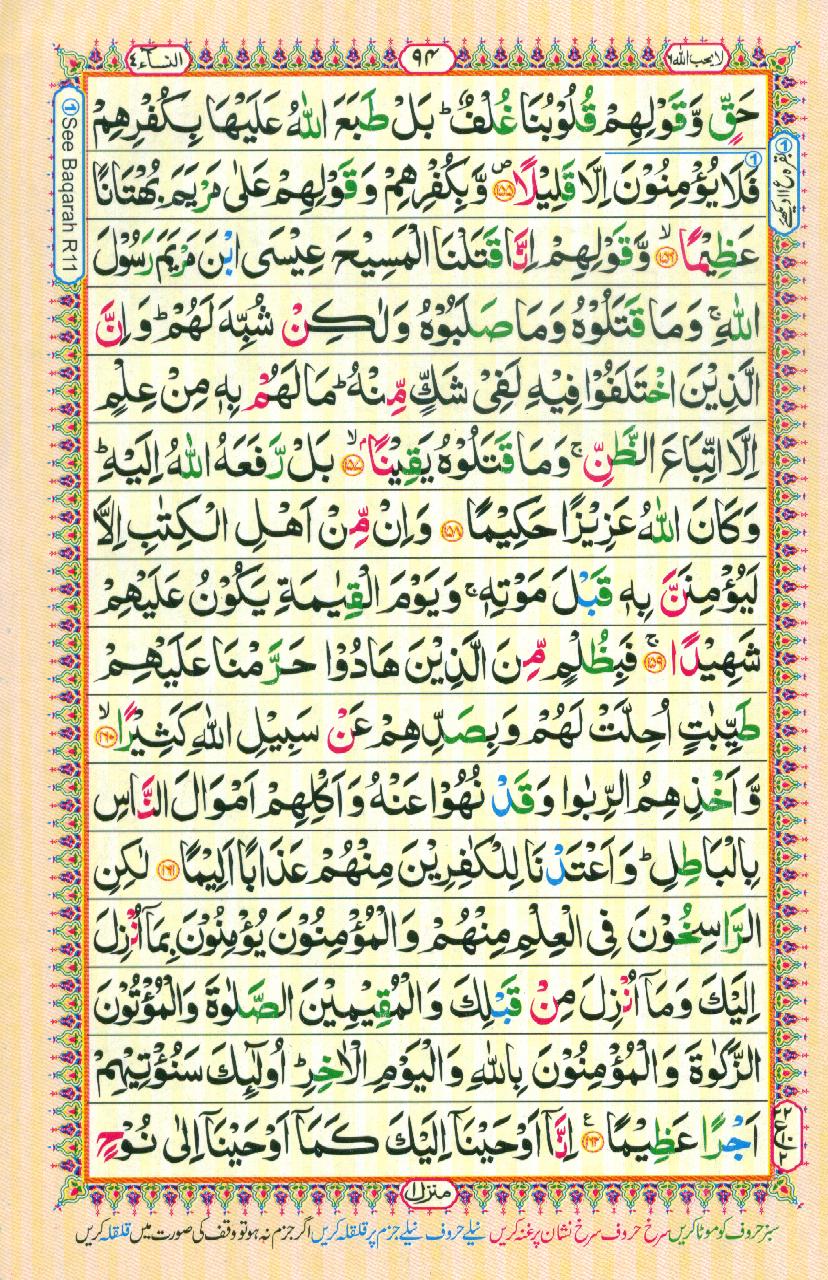 لا يحب الله ٦
٩٤
النسآء ٤
حَقٍّ وَّقَوْلِهِمْ قُلُوْبُنَا غُلْفٌ ؕ بَلْ طَبَعَ اللّٰهُ عَلَيْهَا بِكُفْرِهِمْ
فَلَا يُؤْمِنُوْنَ اِلَّا قَلِيْلًا ۪﴿۱۵۵﴾ وَّبِكُفْرِهِمْ وَقَوْلِهِمْ عَلٰى مَرْيَمَ بُهْتَانًا
عَظِيْمًا ۙ﴿۱۵۶﴾ وَّقَوْلِهِمْ اِنَّا قَتَلْنَا الْمَسِيْحَ عِيْسَى ابْنَ مَرْيَمَ رَسُوْلَ
اللّٰهِ ۚ وَمَا قَتَلُوْهُ وَمَا صَلَبُوْهُ وَلٰكِنْ شُبِّهَ لَهُمْ ؕ وَاِنَّ
الَّذِيْنَ اخْتَلَفُوْا فِيْهِ لَفِيْ شَكٍّ مِّنْهُ ؕ مَا لَهُمْ بِهٖ مِنْ عِلْمٍ
اِلَّا اتِّبَاعَ الظَّنِّ ۚ وَمَا قَتَلُوْهُ يَقِيْنًا ۙ﴿۱۵۷﴾ بَلْ رَّفَعَهُ اللّٰهُ اِلَيْهِ ؕ
وَكَانَ اللّٰهُ عَزِيْزًا حَكِيْمًا ﴿۱۵۸﴾ وَاِنْ مِّنْ اَهْلِ الْكِتٰبِ اِلَّا
لَيُؤْمِنَنَّ بِهٖ قَبْلَ مَوْتِهٖ ۚ وَيَوْمَ الْقِيٰمَةِ يَكُوْنُ عَلَيْهِمْ
شَهِيْدًا ۚ﴿۱۵۹﴾ فَبِظُلْمٍ مِّنَ الَّذِيْنَ هَادُوْا حَرَّمْنَا عَلَيْهِمْ
طَيِّبٰتٍ اُحِلَّتْ لَهُمْ وَبِصَدِّهِمْ عَنْ سَبِيْلِ اللّٰهِ كَثِيْرًا ۙ﴿۱۶۰﴾
وَّاَخْذِهِمُ الرِّبٰوا وَقَدْ نُهُوْا عَنْهُ وَاَكْلِهِمْ اَمْوَالَ النَّاسِ
بِالْبَاطِلِ ؕ وَاَعْتَدْنَا لِلْكٰفِرِيْنَ مِنْهُمْ عَذَابًا اَلِيْمًا ﴿۱۶۱﴾ لٰكِنِ
الرّٰسِخُوْنَ فِي الْعِلْمِ مِنْهُمْ وَالْمُؤْمِنُوْنَ يُؤْمِنُوْنَ بِمَاۤ اُنْزِلَ
اِلَيْكَ وَمَاۤ اُنْزِلَ مِنْ قَبْلِكَ وَالْمُقِيْمِيْنَ الصَّلٰوةَ وَالْمُؤْتُوْنَ
الزَّكٰوةَ وَالْمُؤْمِنُوْنَ بِاللّٰهِ وَالْيَوْمِ الْاٰخِرِ ؕ اُولٰٓئِكَ سَنُؤْتِيْهِمْ
اَجْرًا عَظِيْمًا ﴿۱۶۲﴾ اِنَّاۤ اَوْحَيْنَاۤ اِلَيْكَ كَمَاۤ اَوْحَيْنَاۤ اِلٰى نُوْحٍ
① See Baqarah R11
منزل ۱
سبز حروف کو موٹا کریں سرخ حروف سرخ نشان پر غنہ کریں نیلے حروف نیلے جزم پر قلقلہ کریں اگر جزم نہ ہو تو وقف کی صورت میں قلقلہ کریں